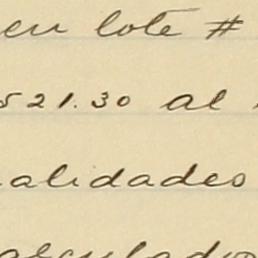 en lote #
521.30 al
alidades
arculado